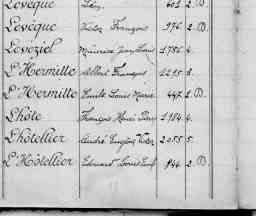 Levêque Léon 601 2. D.
Levêque Victor François 976 2. D.
Leveziel Maurice Jean Louis 1786 4.
L'Hermitte Albert François 2295 8.
L'Hermitte Emile Louis Marie 447 2. D.
Lhôte François Henri 1984 4.
Lhôtellier André Eugène Victor 2055 5.
L'Hôtellier Edouard Louis 944 2. D.